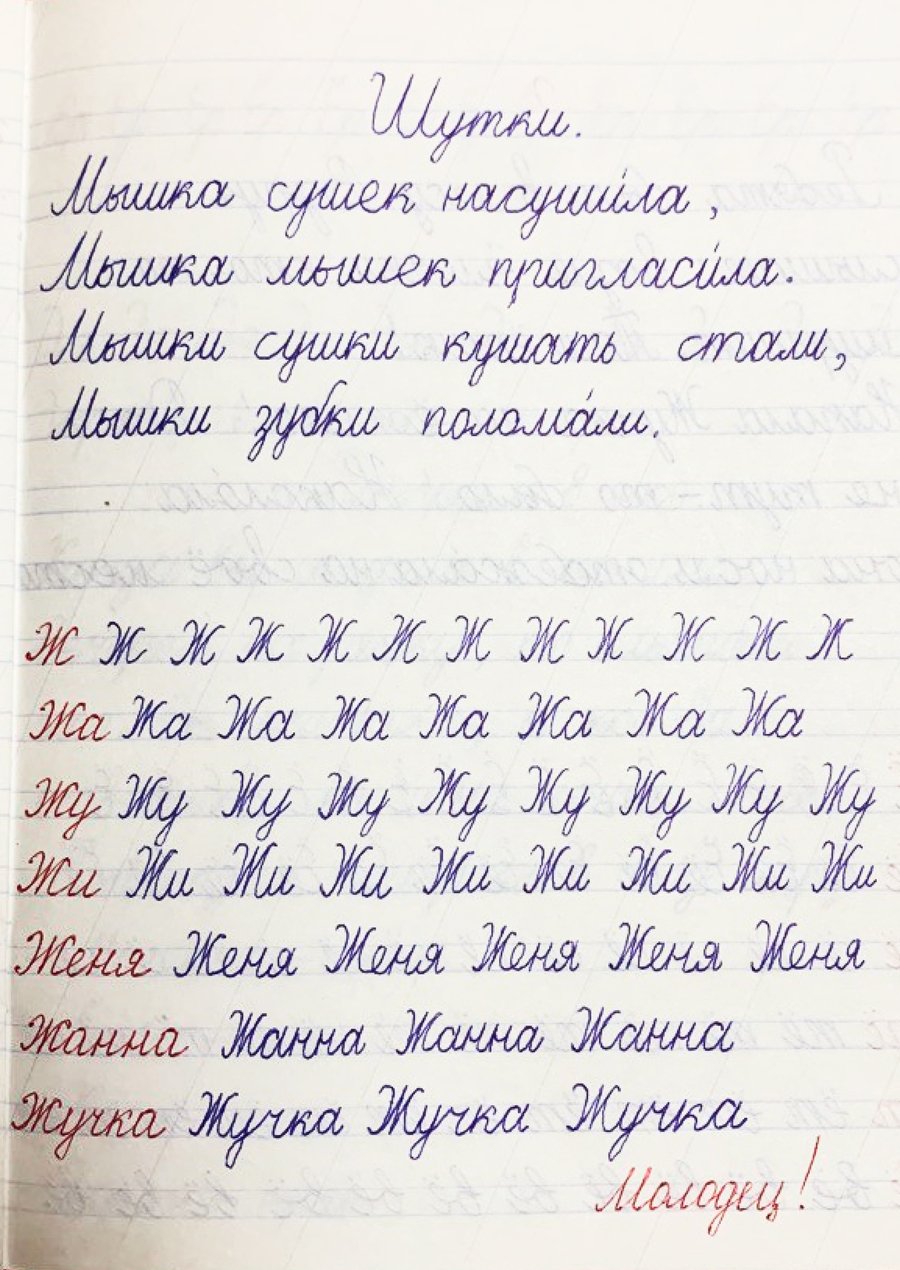 Шутки.
Мышка сушек насуши́ла,
Мышка мышек пригласи́ла.
Мышки сушки кушать стали,
Мышки зубки полома́ли.
Ж Ж Ж Ж Ж Ж Ж Ж Ж Ж Ж Ж
Жа Жа Жа Жа Жа Жа Жа Жа
Жу Жу Жу Жу Жу Жу Жу Жу Жу
Жи Жи Жи Жи Жи Жи Жи Жи Жи
Женя Женя Женя Женя Женя Женя
Жанна Жанна Жанна Жанна
Жучка Жучка Жучка Жучка
Молодец!